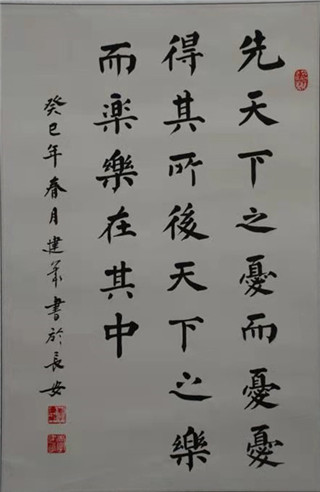 先天下之憂而憂憂
得其所後天下之樂
而楽樂在其中
癸巳年春月建華書於長安